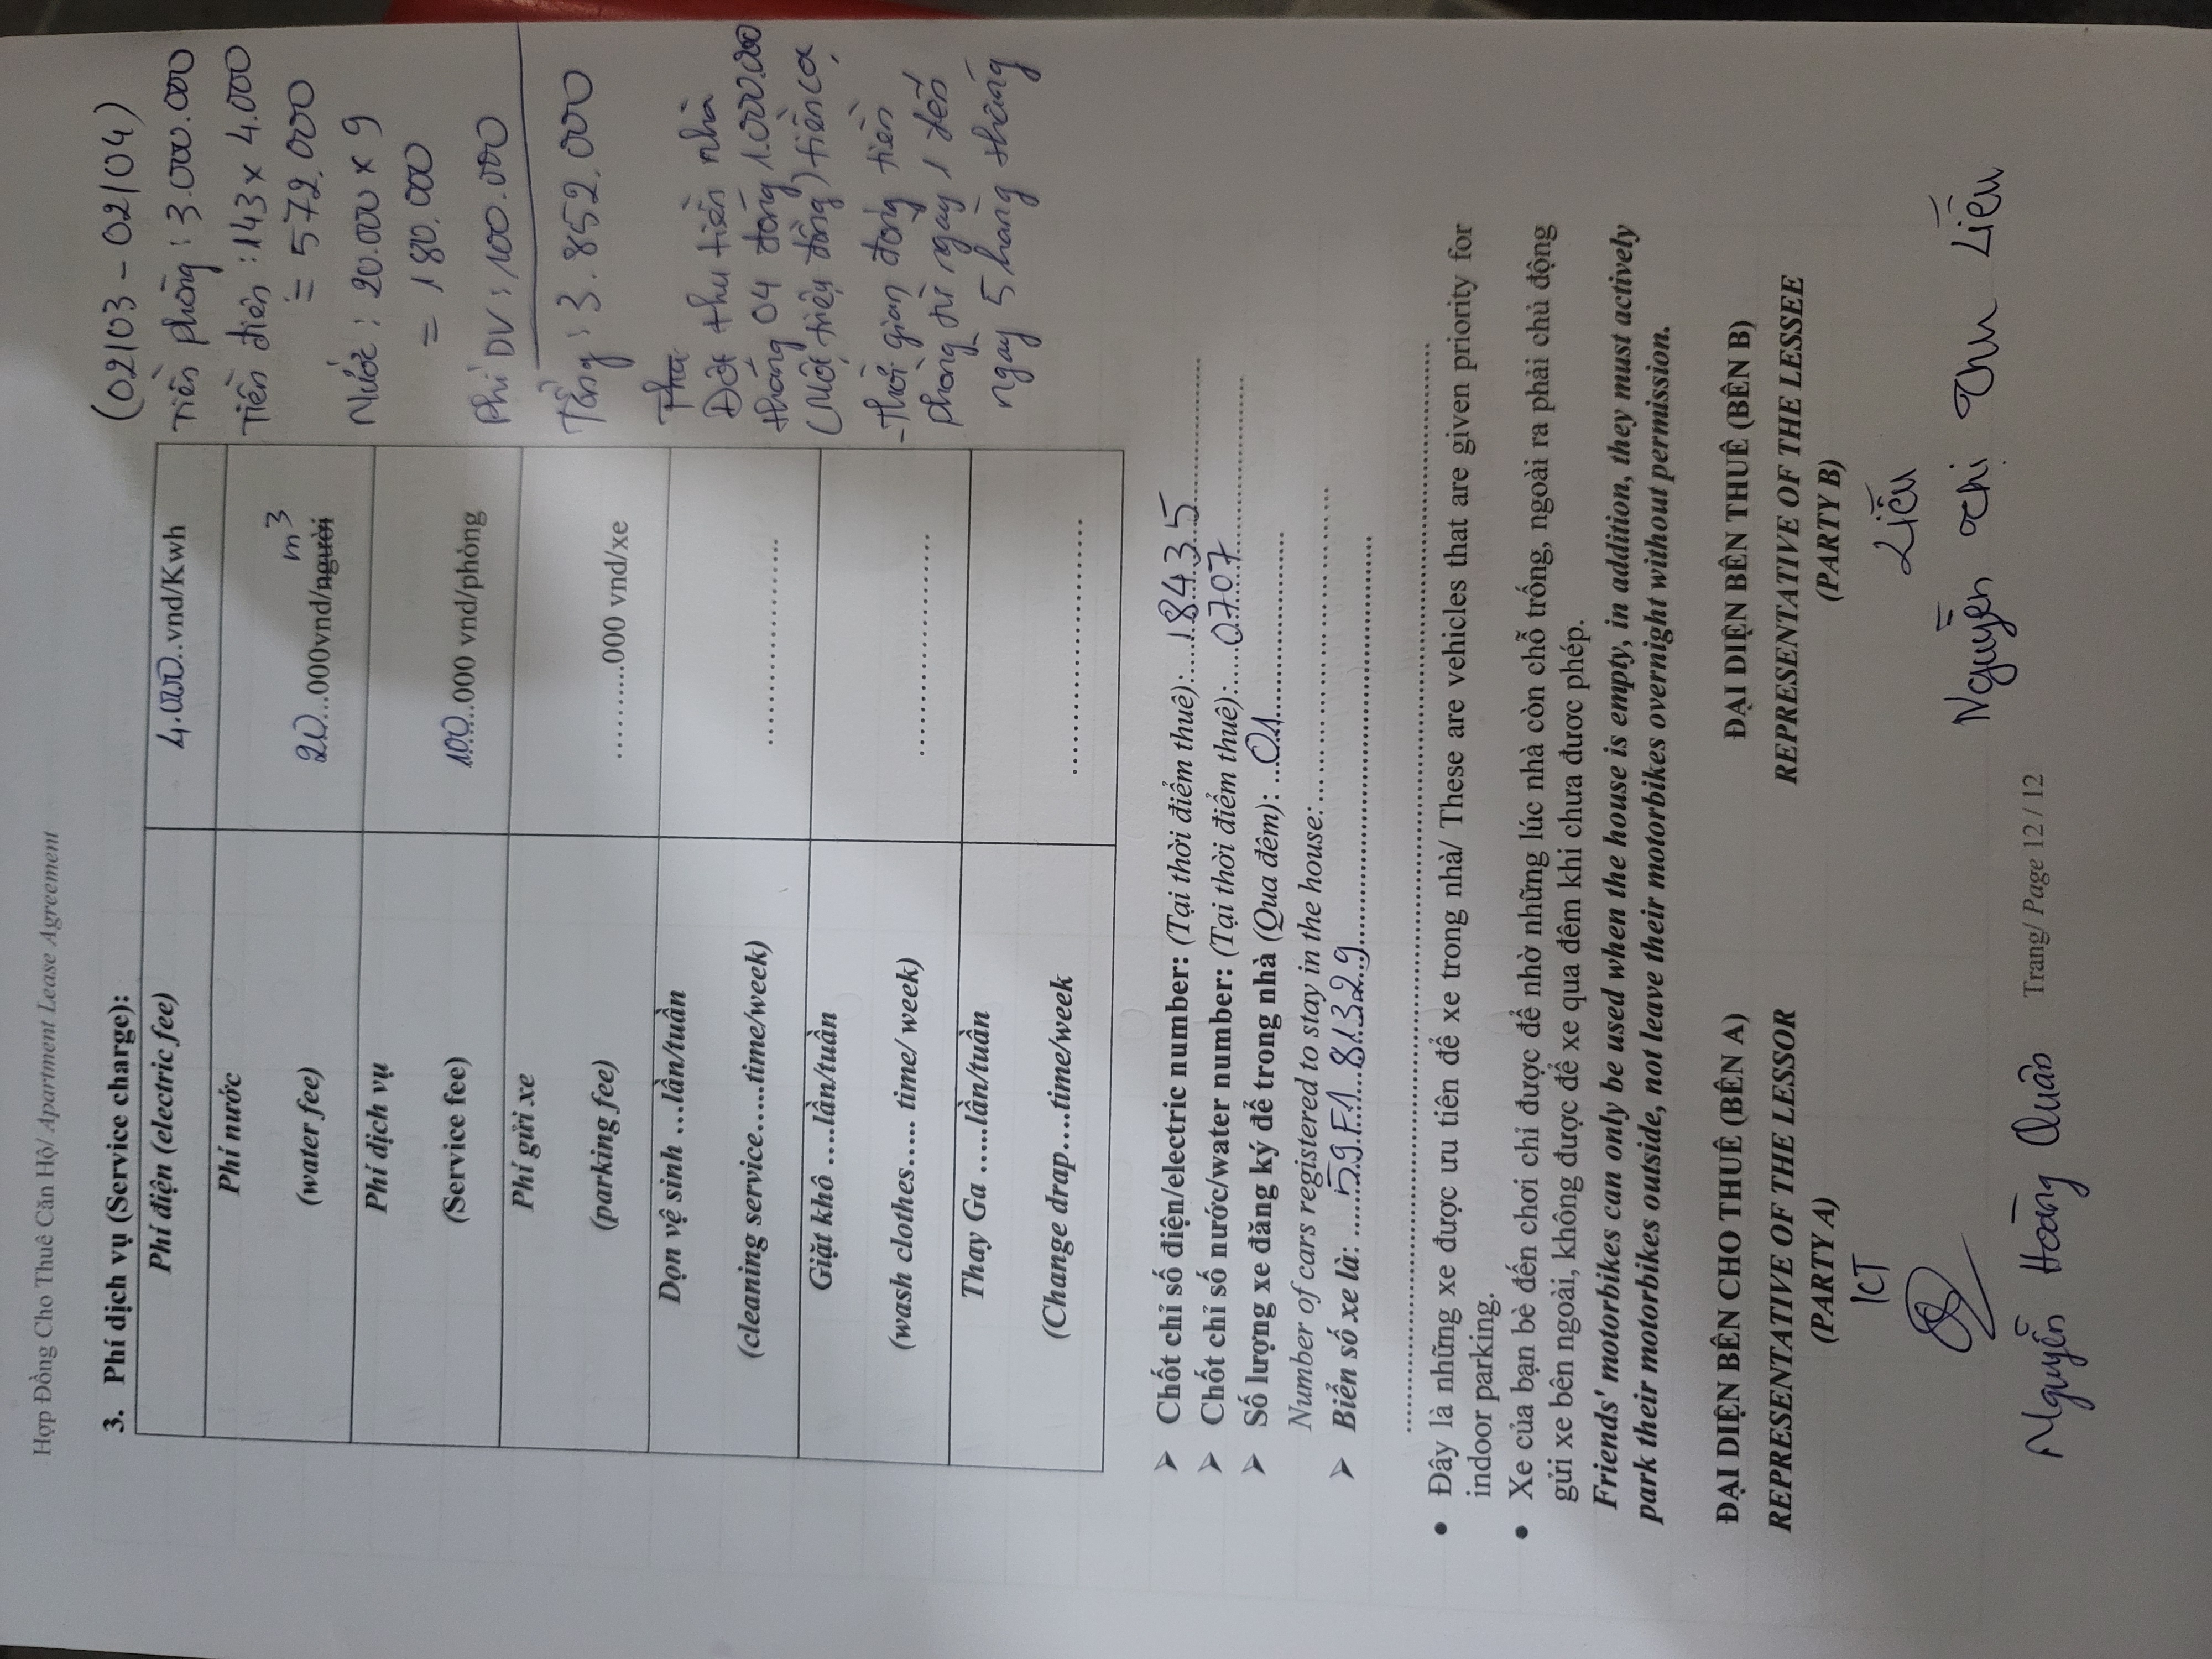 Hợp Đồng Cho Thuê Căn Hộ/ Apartment Lease Agreement
3. Phí dịch vụ (Service charge):
Phí điện (electric fee)
4.000..vnd/Kwh
Phí nước
(water fee)
m3
20...000vnd/người
Phí dịch vụ
(Service fee)
100...000 vnd/phòng
Phí gửi xe
(parking fee)
..........000 vnd/xe
Dọn vệ sinh ...lần/tuần
(cleaning service.....time/week)
..............................
Giặt khô ....lần/tuần
(wash clothes..... time/ week)
..............................
Thay Ga .....lần/tuần
(Change drap....time/week
..............................
(02/03 - 02/04)
Tiền phòng : 3.000.000
Tiền điện : 143 x 4.000
= 572.000
Nước : 20.000 x 9
= 180.000
Phí DV : 100.000
Tổng : 3.852.000
Đợt thu tiền nhà
tháng 04 đóng 1.000.000
(Một triệu đồng) tiền cọ
- Thời gian đóng tiền
phòng từ ngày 1 đến
ngay 5 hàng tháng
➤ Chốt chỉ số điện/electric number: (Tại thời điểm thuê):....18435....................
➤ Chốt chỉ số nước/water number: (Tại thời điểm thuê):....0707....................
➤ Số lượng xe đăng ký để trong nhà (Qua đêm): ...01....................
Number of cars registered to stay in the house:....................
➤ Biển số xe là: ........59F1 81329....................
....................
• Đây là những xe được ưu tiên để xe trong nhà/ These are vehicles that are given priority for
indoor parking.
• Xe của bạn bè đến chơi chỉ được để nhờ những lúc nhà còn chỗ trống, ngoài ra phải chủ động
gửi xe bên ngoài, không được để xe qua đêm khi chưa được phép.
Friends' motorbikes can only be used when the house is empty, in addition, they must actively
park their motorbikes outside, not leave their motorbikes overnight without permission.
ĐẠI DIỆN BÊN CHO THUÊ (BÊN A)
REPRESENTATIVE OF THE LESSOR
(PARTY A)
KT
Nguyễn Hoàng Quân
ĐẠI DIỆN BÊN THUÊ (BÊN B)
REPRESENTATIVE OF THE LESSEE
(PARTY B)
Liễu
Nguyễn Thị Thu Liễu
Trang/ Page 12 / 12